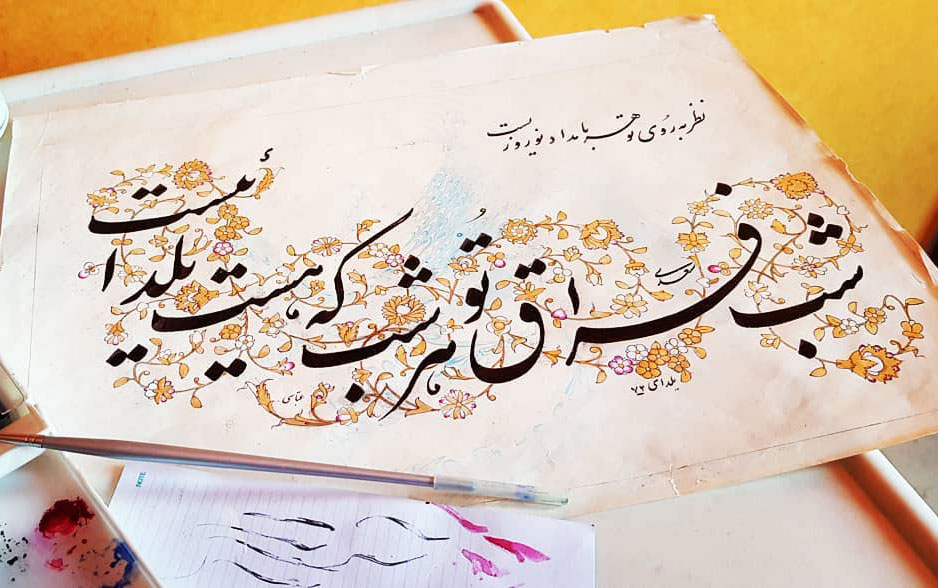 نظر به روی تو هر بامداد نوروزیست
شب فراق تُو هر شب که هست یلدائیست
سعدی
یلدای ۷۲
عباسی
NOTE